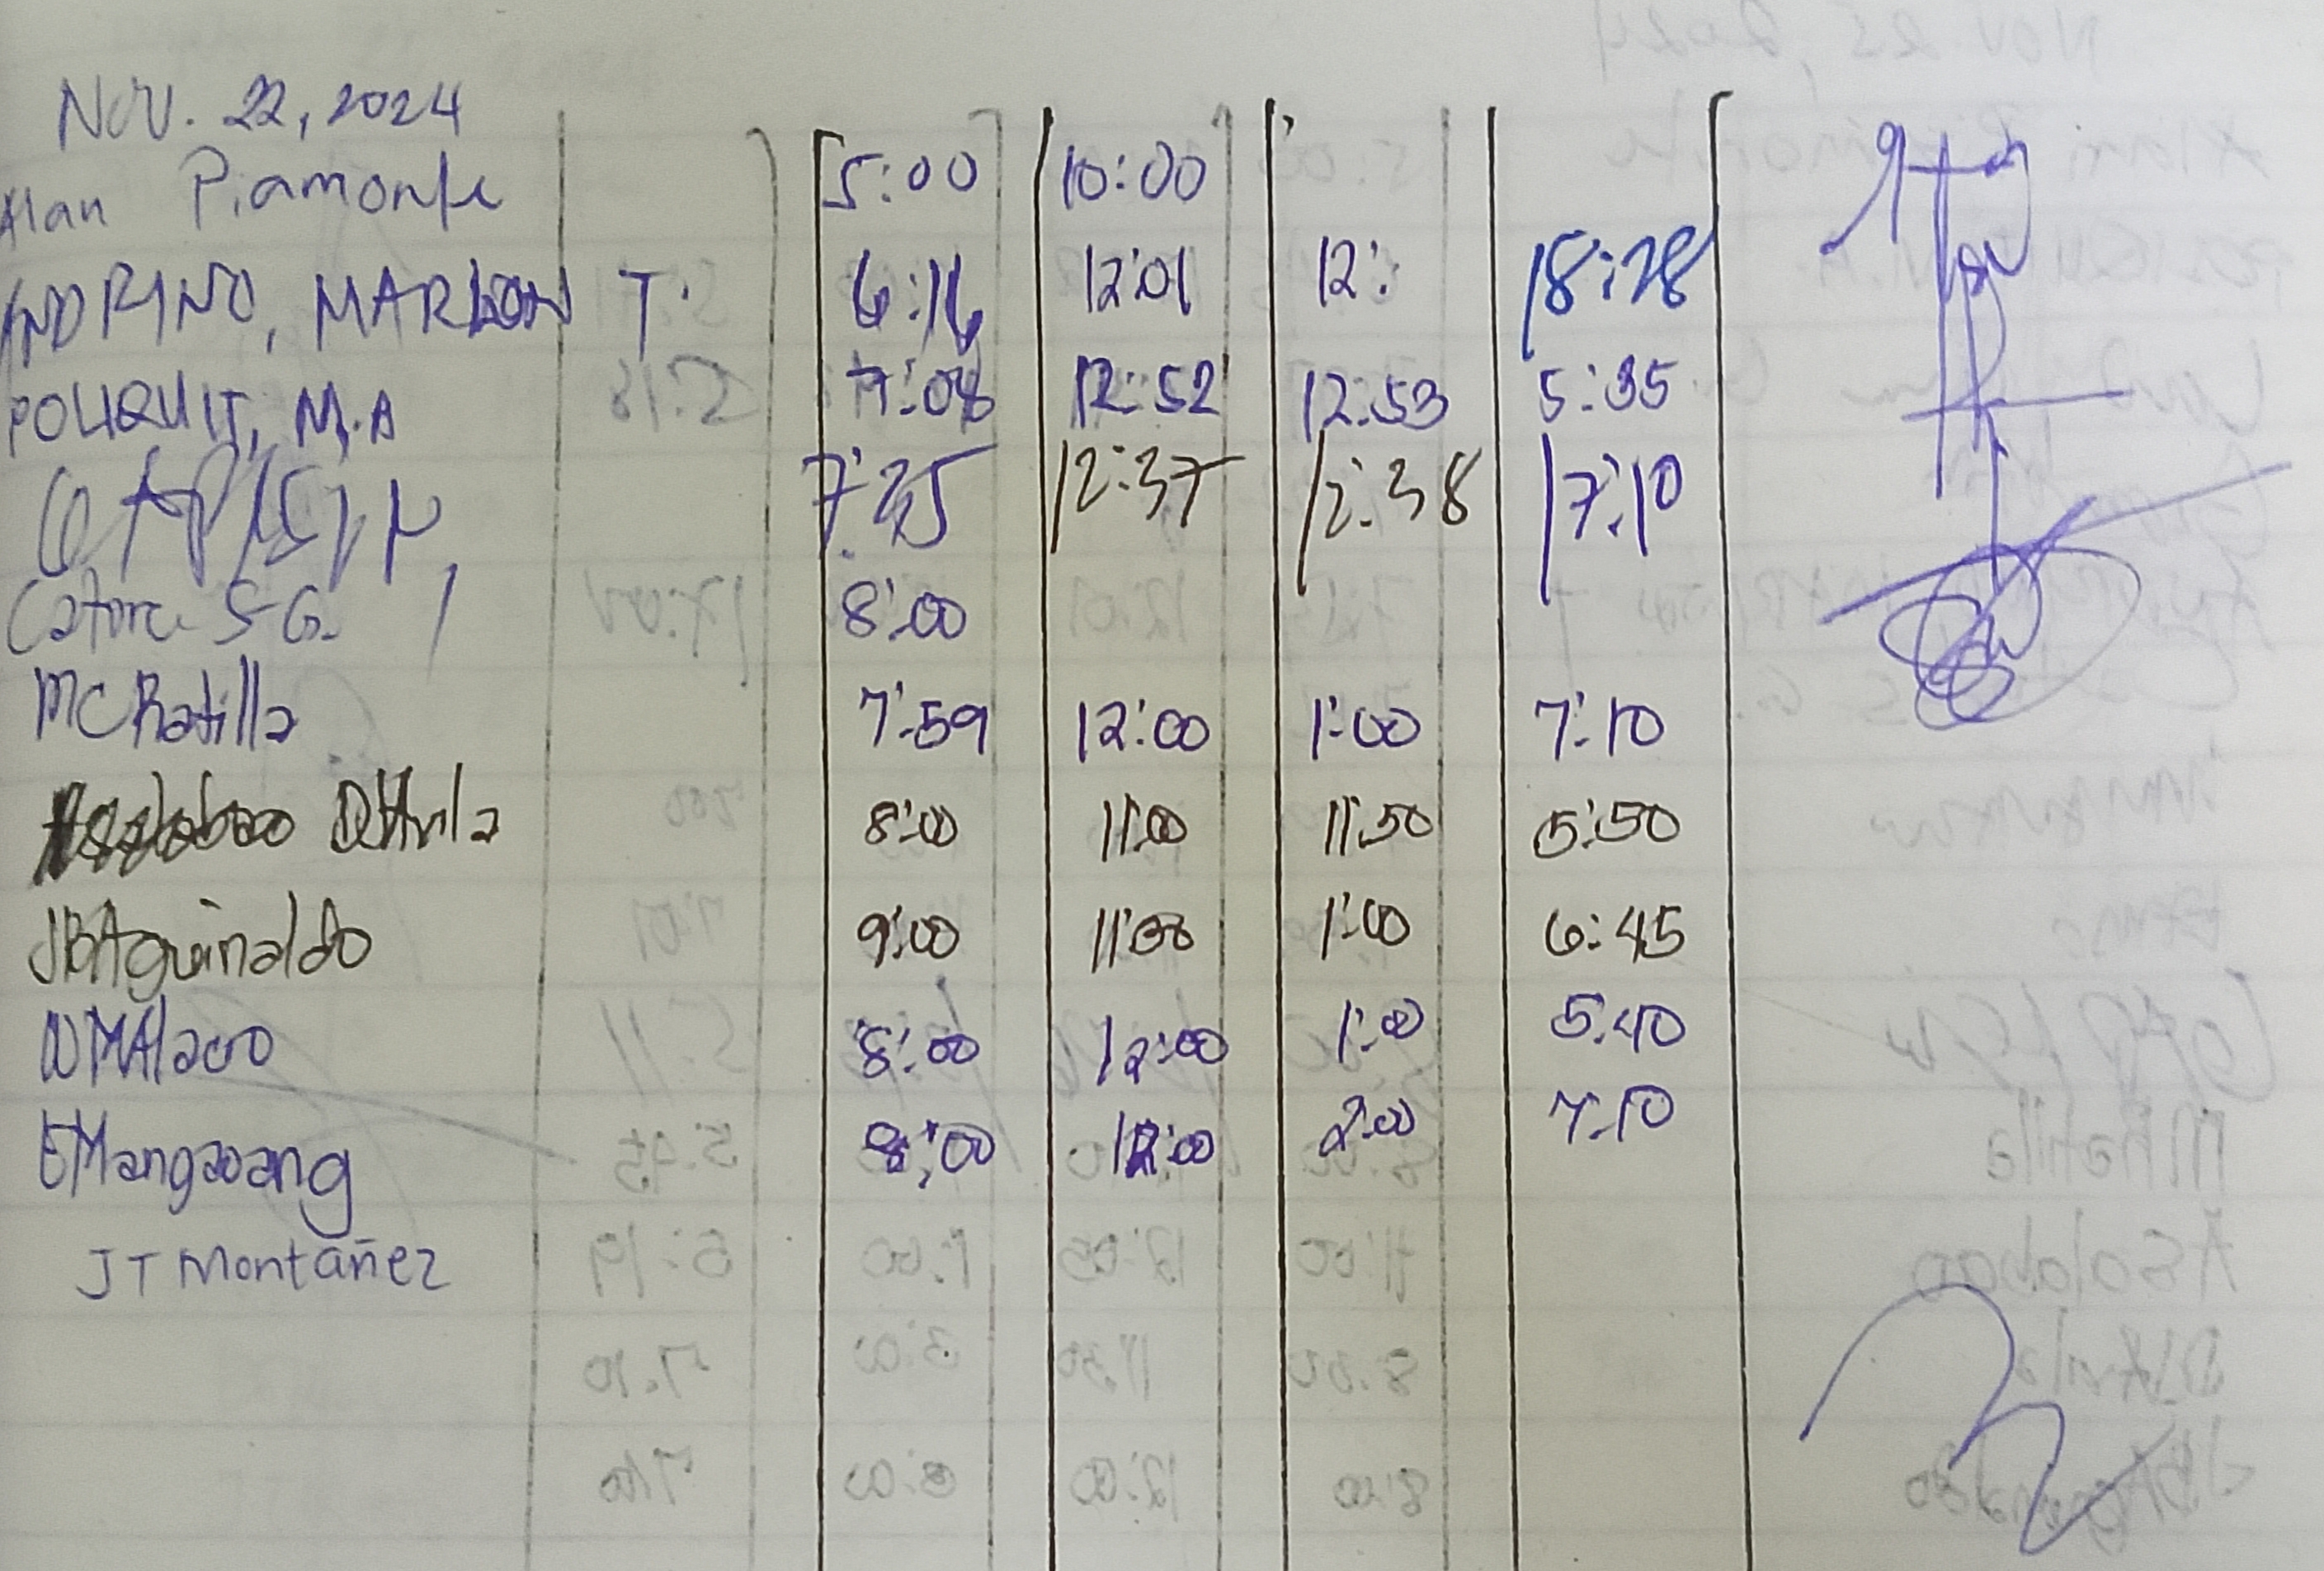 Nov. 22, 2024
Alan Piamonte 5:00 10:00
ANDRINO, MARLON T. 6:16 12:01 12: 18:28
POLIQUIT, M.A 7:08 12:52 12:53 5:35
7:25 12:37 12:38 17:10
Catore S.G. 8:00
MCRatilla 7:59 12:00 1:00 7:10
DJAvila 8:00 11:00 11:50 5:50
JBAguinaldo 9:00 11:30 1:00 6:45
NMAlaco 8:00 12:00 1:00 5:40
EMangaoang 8:00 12:00 2:00 7:10
JT Montañez